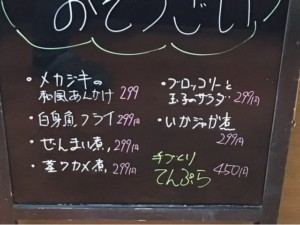 おそうざい
・メカジキの
和風あんかけ 299
・白身魚フライ 299円
・ぜんまい煮 299円
・茎ワカメ煮 299円
・ブロッコリーと
玉子のサラダ 299円
・いかじゃが煮
299円
手づくり
てんぷら 450円